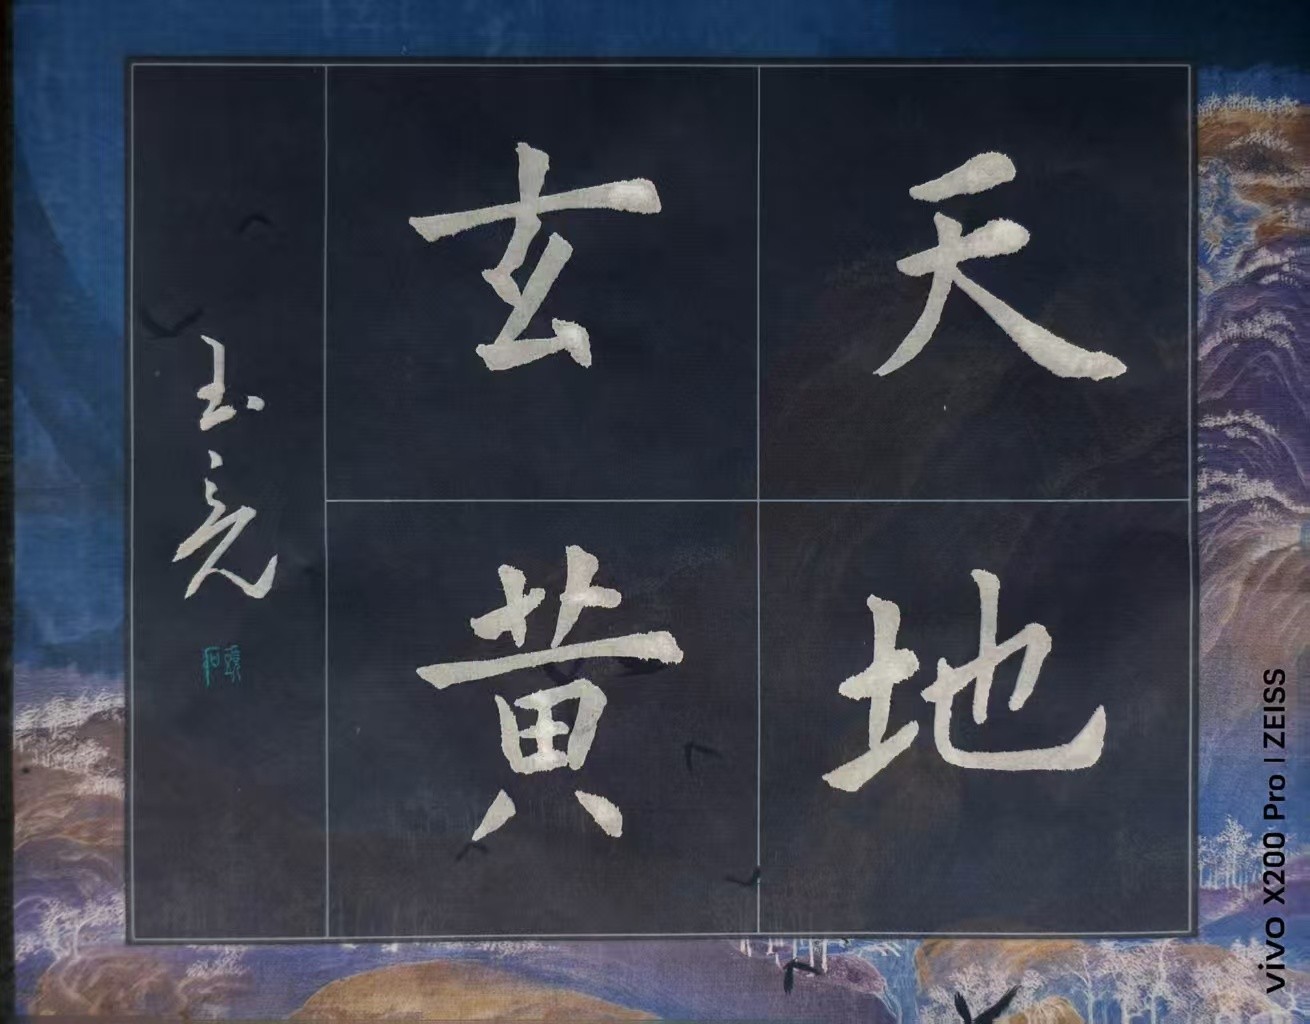 天地
玄黄
玉亮
vivo X200 Pro | ZEISS